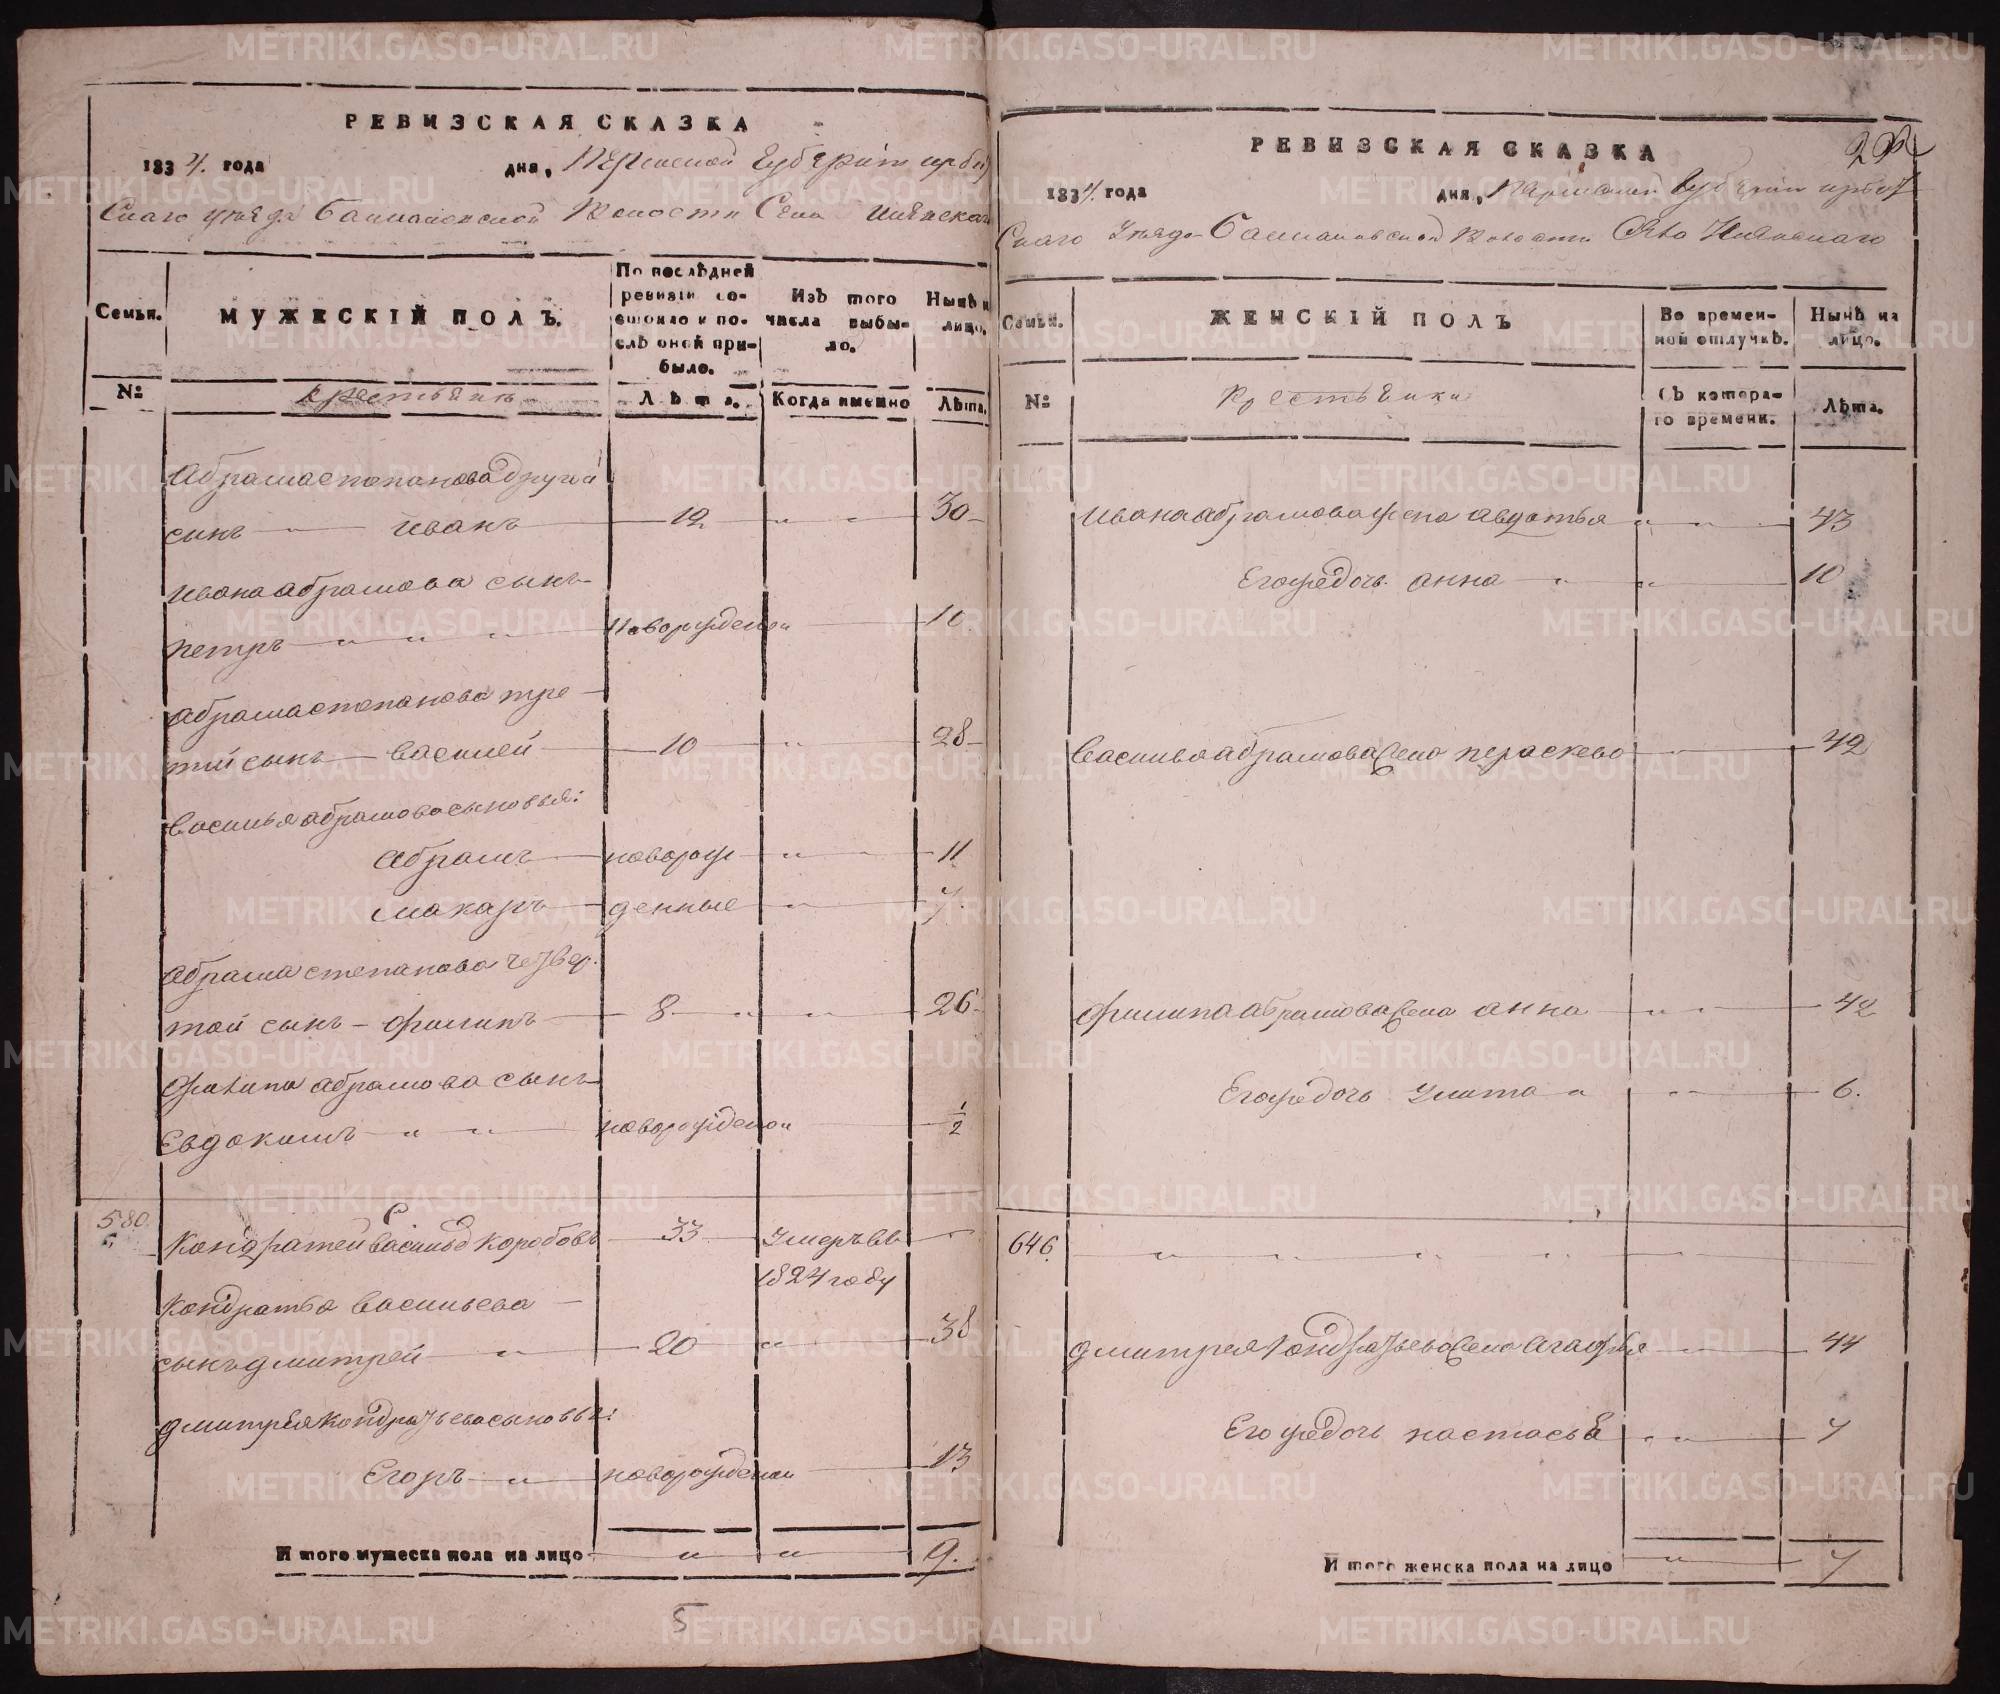 РЕВИЗСКАЯ СКАЗКА
1834. года дня, Пермской Губернiи ирбит
Скаго уезда Волости Села
Семьи. МУЖЕСКІЙ ПОЛЪ. По послѣдней ревизіи состояло и послѣ оной прибыло. Изъ того числа выбыло. Нынѣ на лицо.
№ крестьянъ Лѣта. Когда именно Лѣта.
Абрама степанова другой
сынъ — иванъ 12 " 30
ивана абрамова сынъ
петръ " " " новорожденой 10.
абрама степанова тре
тий сынъ — василей 10 " 28
васильа абрамова сыновья:
абрамъ новорож " 11
макаръ денные " 7.
абрама степанова четвер
той сынъ — филипъ 8 " " 26
филипа абрамова сынъ
Евдокимъ " " новорожденой 1/2
580. Кондратей васильев Коробовъ 33 Умеръ въ
1824 году
Кондратьа васильева
сынъ дмитрей " 20 " 38
дмитрея кондратьева сыновья:
Егоръ " новорожденой 13
И того мужеска пола на лицо " " 9.
5
РЕВИЗСКАЯ СКАЗКА
1834. года дня, Пермской Губернiи ирбит
Скаго Уезда Волости
Семьи. ЖЕНСКІЙ ПОЛЪ Во временной отлучкѣ. Нынѣ на лицо.
№ Крестьянки Съ котораго времени. Лѣта.
ивана абрамова жена авдотья " " 43
Его же дочь анна " " 10
васильа абрамова жена параскева " 42
филипа абрамова жена анна " " 42
Его же дочь Улита " " 6.
646. " " " " " "
дмитрея Кондратьева жена Агафья " 44
Его же дочь настасья " " 7
И того женска пола на лицо " 7
METRIKI.GASO-URAL.RU